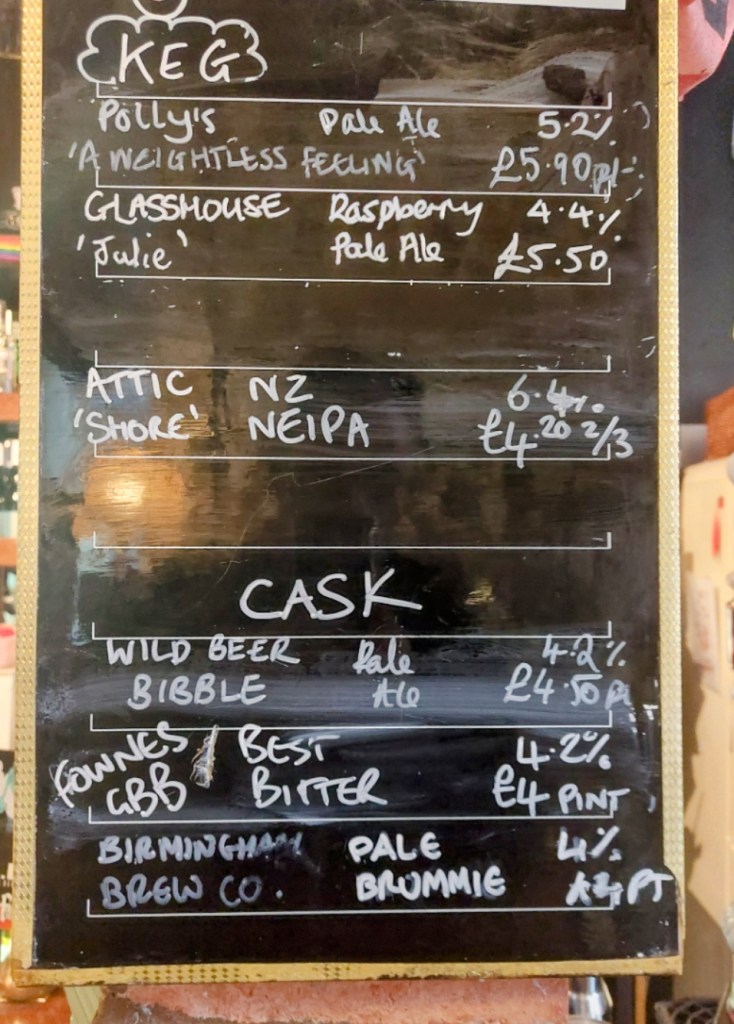 KEG
Polly's Pale Ale 5.2%
'A WEIGHTLESS FEELING' £5.90 pt
GLASSHOUSE Raspberry 4.4%
'Julie' Pale Ale £5.50
ATTIC NZ 6.4%
'SHORE' NEIPA £4.20 2/3
CASK
WILD BEER Pale 4.2%
BIBBLE Ale £4.50 p
FOWNES BEST 4.2%
GBB BITTER £4 PINT
BIRMINGHAM PALE 4%
BREW CO. BRUMMIE £4 PT